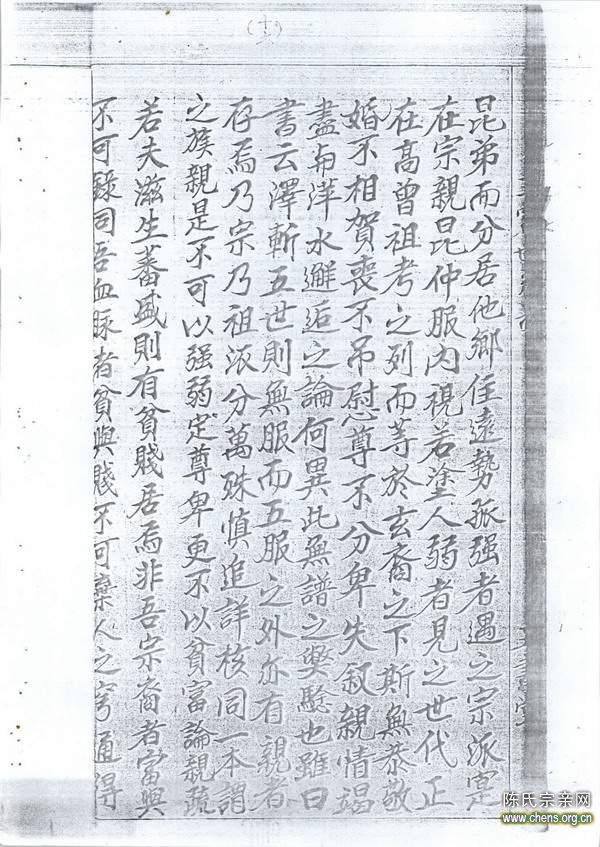 (十六)
昆弟而分居他鄉住遠勢孤强者遇之宗派寔
在宗親昆仲服內視若塗人弱者見之世代正
在高曾祖考之列而等於玄裔之下斯無恭敬
婚不相賀喪不吊慰尊不分卑失叙親情竭
盡甭萍水邂逅之論何異此無譜之獘騐也雖曰
書云澤斬五世則無服而五服之外亦有親者
存焉乃宗乃祖派分萬殊慎追詳核同一本謂
之族親是不可以强弱定尊卑更不以貧富論親疏
若夫滋生蕃盛則有貧賤居焉非吾宗裔者富與
不可録同吾血脉者貧與賤不可棄人之窮通得
陈氏宗亲网
www.chens.org.cn